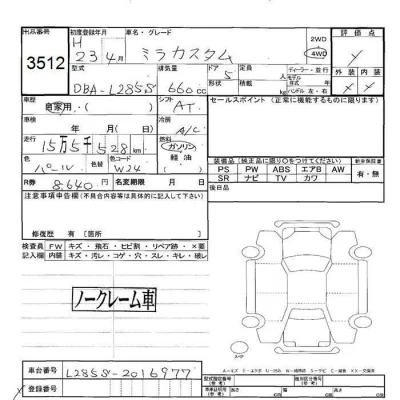 出品番号 初度登録年月 車名・グレード 2WD 評価点
3512 H 23年4月 ミラカスタム 4WD
型式 排気量 ドア 定員 ディーラー・並行 外装 内装
DBA-L285S 660cc 5 ハンドル 左・右
車歴 自家用・( ) シフト AT セールスポイント(正常に機能するものに限ります)
車検 年 月(日) 冷房 A/C
走行 15万5千528km 燃料 ガソリン 軽油 装備品(純正品に限り○をつけてください)
色 パール 色替 色コード W24 PS PW ABS エアB AW 有・無
R券 8,640円 名変期限 月 日 SR ナビ TV カワ
注意事項申告欄(不具合内容等は具体的に記入して下さい) 後日品
修復歴 有〔箇所 〕
検査員 FW キズ・飛石・ヒビ割・リペア跡・×要
記入欄 内装 キズ・汚レ・コゲ・穴・スレ・キレ・破レ
ノークレーム車
スペア
車台番号 L285S-2016977
登録番号